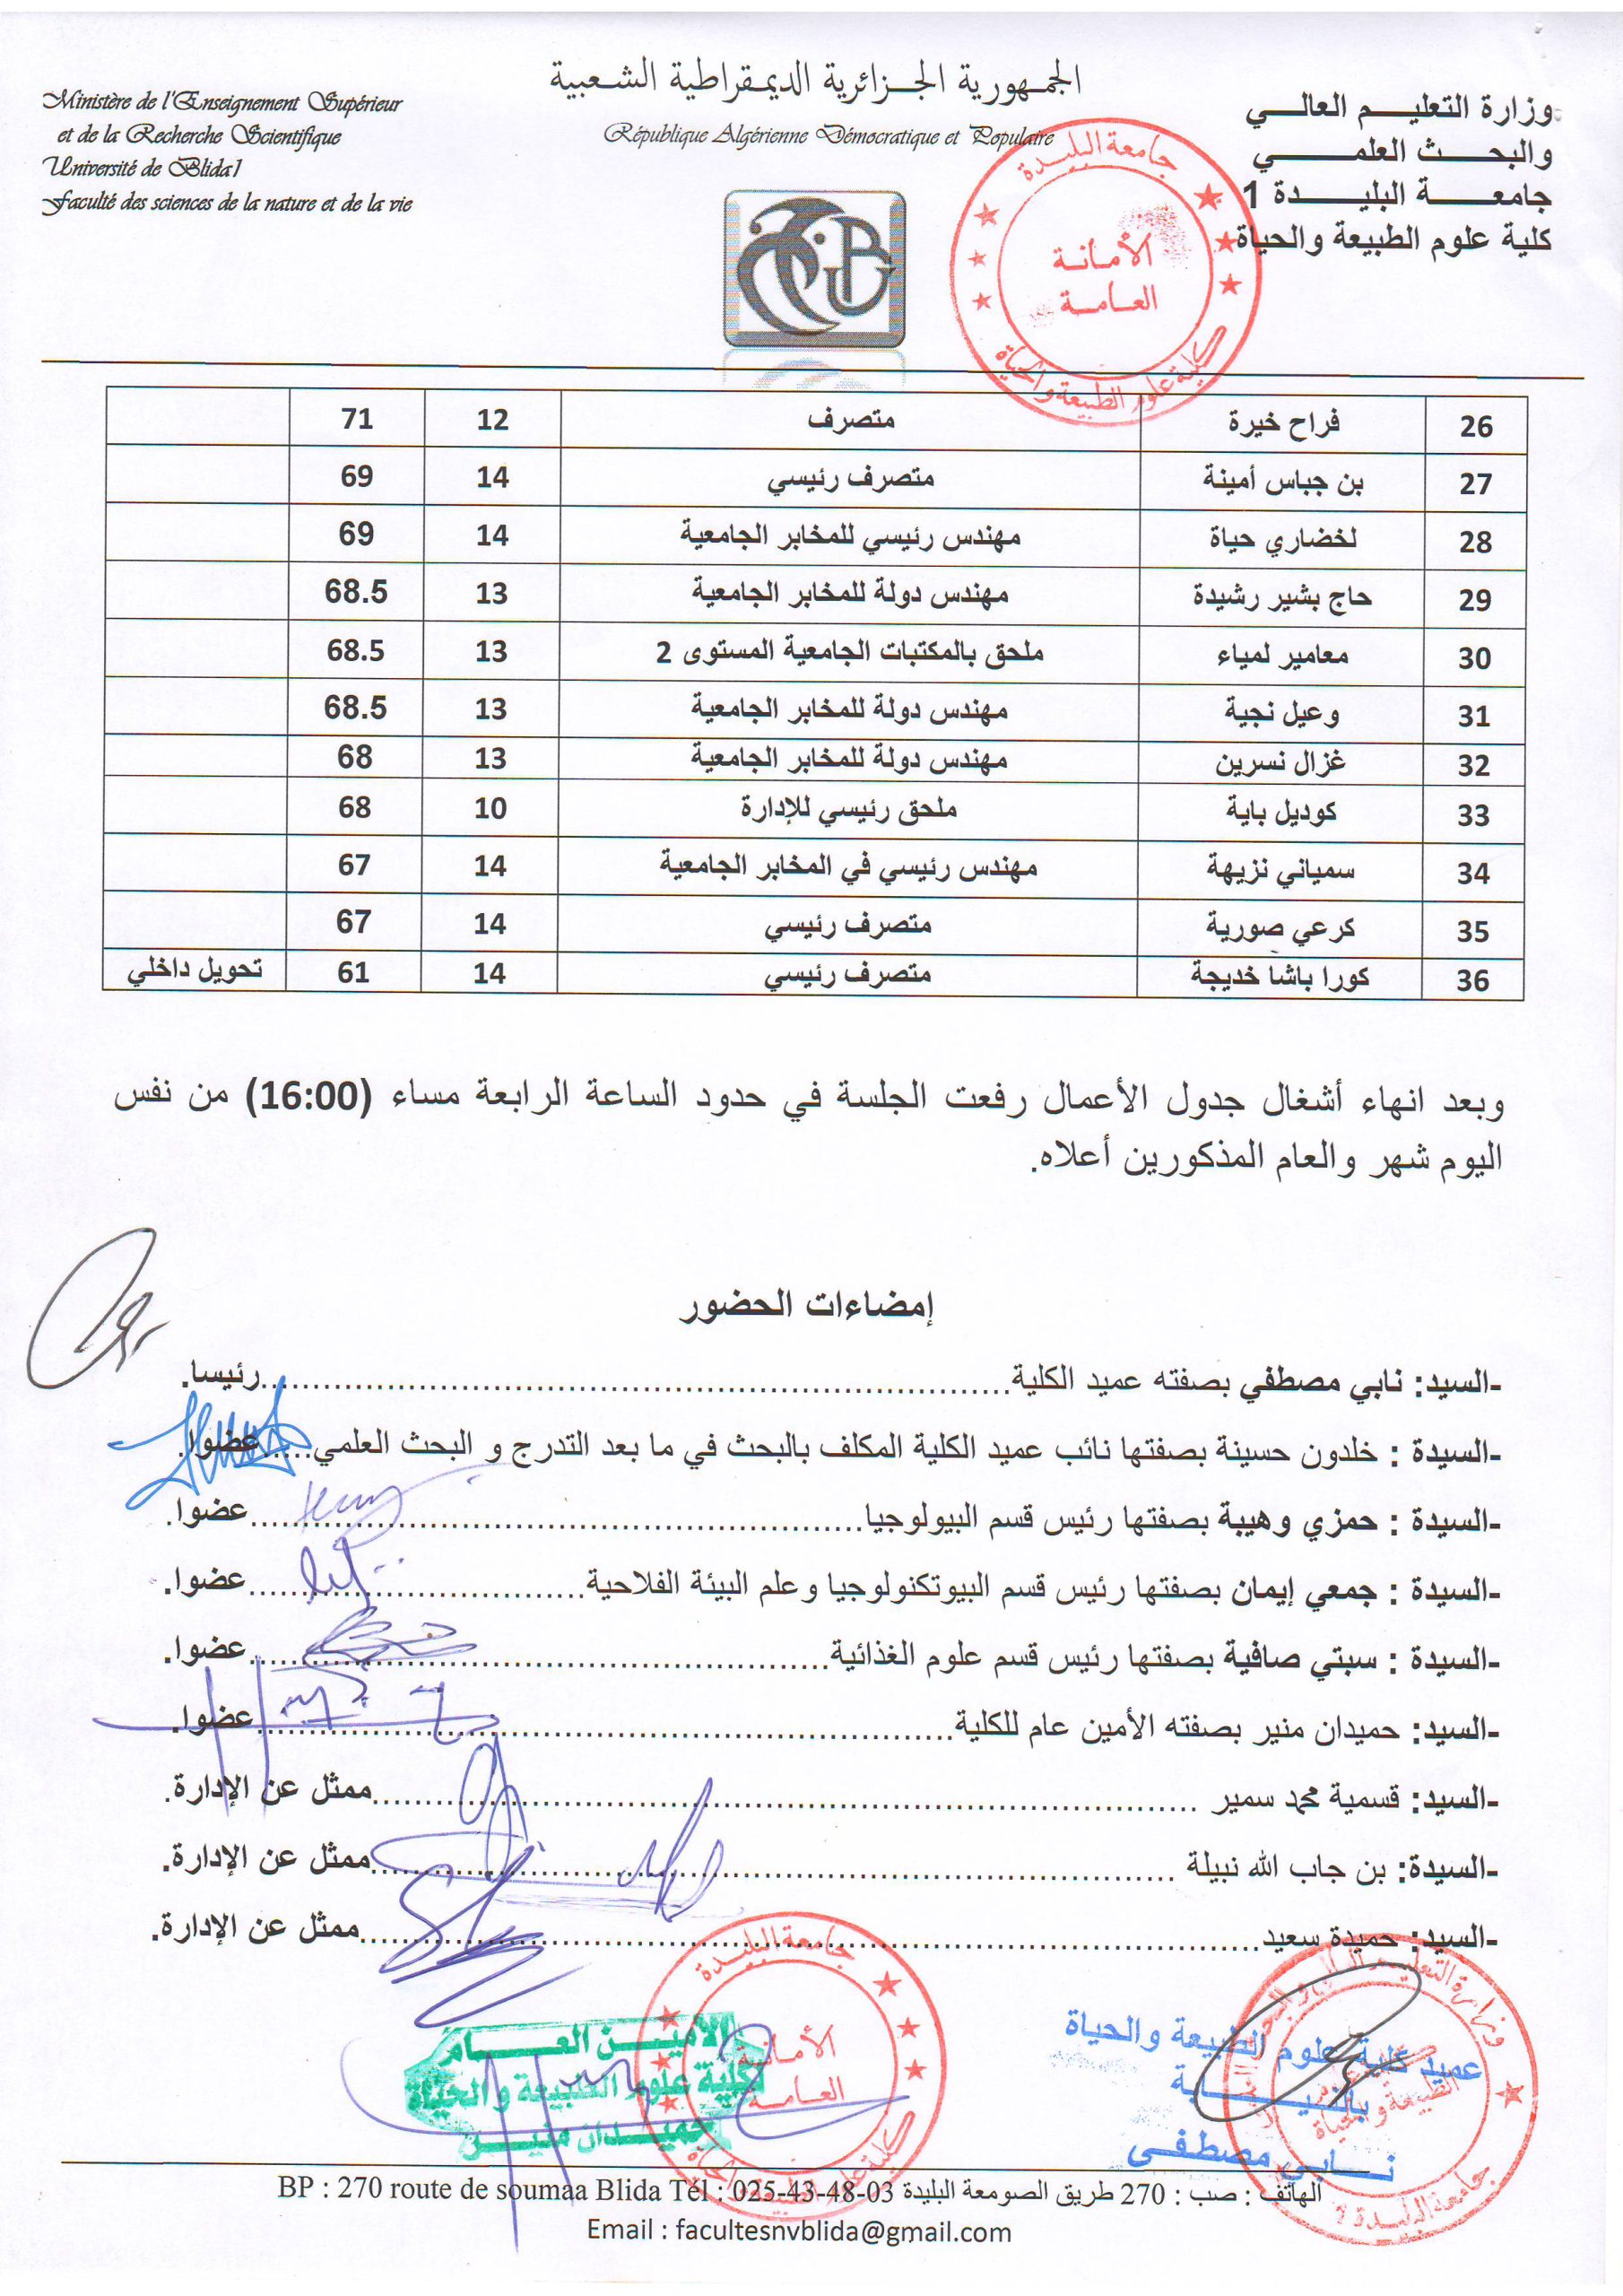 الجمهورية الجزائرية الديمقراطية الشعبية
République Algérienne Démocratique et Populaire
Ministère de l'Enseignement Supérieur
et de la Recherche Scientifique
Université de Blida1
Faculté des sciences de la nature et de la vie
وزارة التعليم العالي
والبحث العلمي
جامعة البليدة 1
كلية علوم الطبيعة والحياة
جامعة البليدة
الأمانة
العامة
كلية علوم الطبيعة والحياة
26 فراح خيرة متصرف 12 71
27 بن جباس أمينة متصرف رئيسي 14 69
28 لخضاري حياة مهندس رئيسي للمخابر الجامعية 14 69
29 حاج بشير رشيدة مهندس دولة للمخابر الجامعية 13 68.5
30 معامير لمياء ملحق بالمكتبات الجامعية المستوى 2 13 68.5
31 وعيل نجية مهندس دولة للمخابر الجامعية 13 68.5
32 غزال نسرين مهندس دولة للمخابر الجامعية 13 68
33 كوديل باية ملحق رئيسي للإدارة 10 68
34 سمياني نزيهة مهندس رئيسي في المخابر الجامعية 14 67
35 كرعي صورية متصرف رئيسي 14 67
36 كورا باشا خديجة متصرف رئيسي 14 61 تحويل داخلي
وبعد انهاء أشغال جدول الأعمال رفعت الجلسة في حدود الساعة الرابعة مساء (16:00) من نفس
اليوم شهر والعام المذكورين أعلاه.
إمضاءات الحضور
-السيد: نابي مصطفي بصفته عميد الكلية......رئيسا.
-السيدة : خلدون حسينة بصفتها نائب عميد الكلية المكلف بالبحث في ما بعد التدرج و البحث العلمي......عضوا.
-السيدة : حمزي وهيبة بصفتها رئيس قسم البيولوجيا......عضوا.
-السيدة : جمعي إيمان بصفتها رئيس قسم البيوتكنولوجيا وعلم البيئة الفلاحية......عضوا.
-السيدة : سبتي صافية بصفتها رئيس قسم علوم الغذائية......عضوا.
-السيد: حميدان منير بصفته الأمين عام للكلية......عضوا.
-السيد: قسمية محمد سمير ......ممثل عن الإدارة.
-السيدة: بن جاب الله نبيلة ......ممثل عن الإدارة.
-السيد: حميدة سعيد......ممثل عن الإدارة.
عميد كلية علوم الطبيعة والحياة
بالنيابة
نابي مصطفى
وزارة التعليم العالي والبحث العلمي
جامعة البليدة 1
جامعة البليدة
الأمانة
العامة
كلية علوم الطبيعة والحياة
الأمين العام
كلية علوم الطبيعة والحياة
حميدان منير
BP : 270 route de soumaa Blida Tél : 025-43-48-03 الهاتف : صب : 270 طريق الصومعة البليدة
Email : facultesnvblida@gmail.com